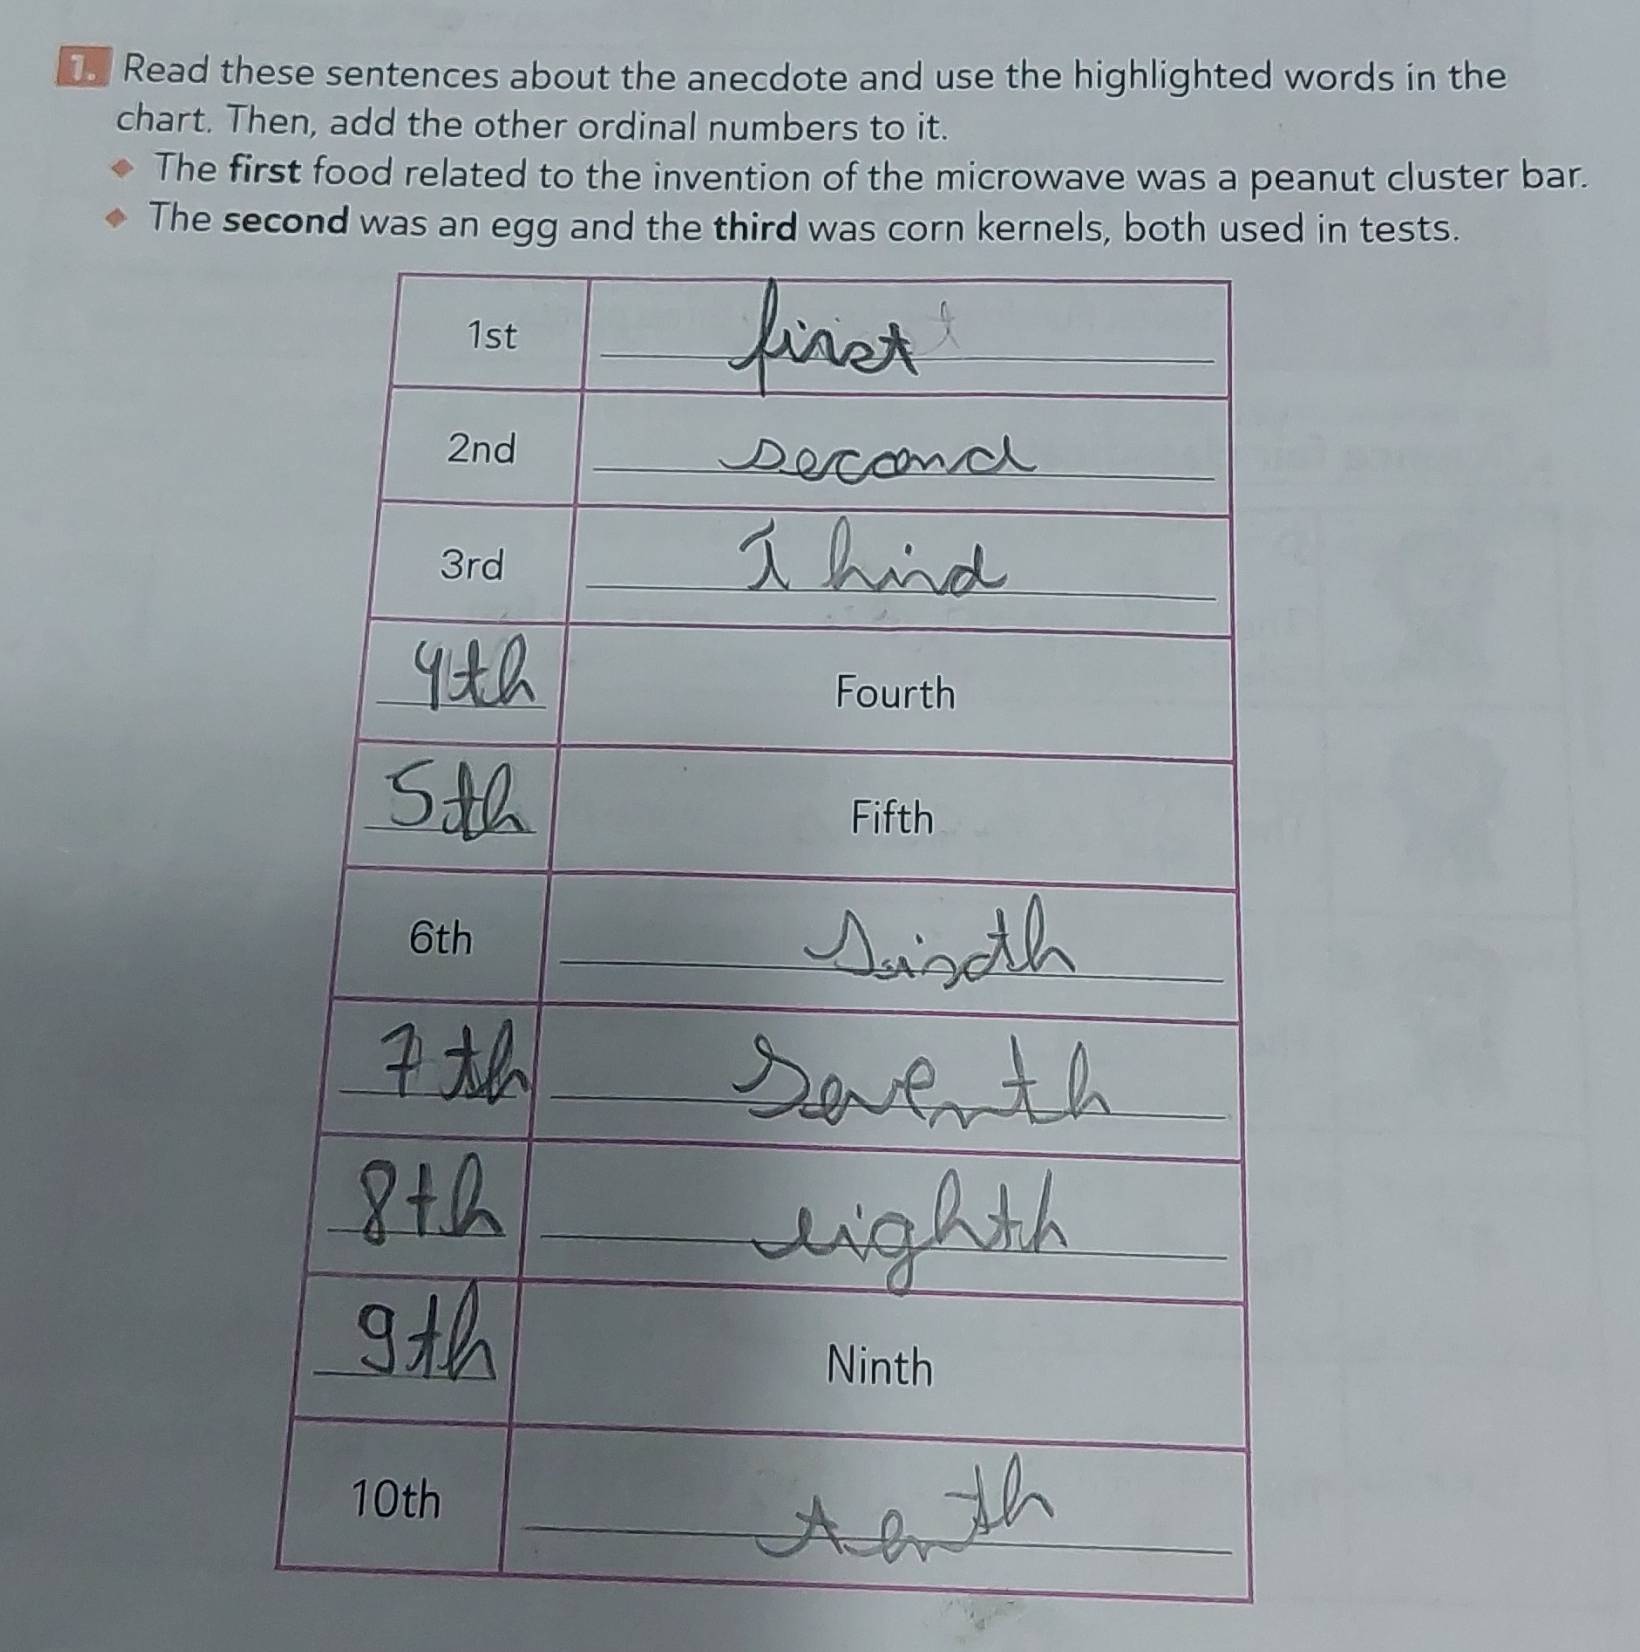 1. Read these sentences about the anecdote and use the highlighted words in the
chart. Then, add the other ordinal numbers to it.
The first food related to the invention of the microwave was a peanut cluster bar.
The second was an egg and the third was corn kernels, both used in tests.
1st first
2nd second
3rd Third
4th Fourth
5th Fifth
6th Sixth
7th Seventh
8th eighth
9th Ninth
10th tenth